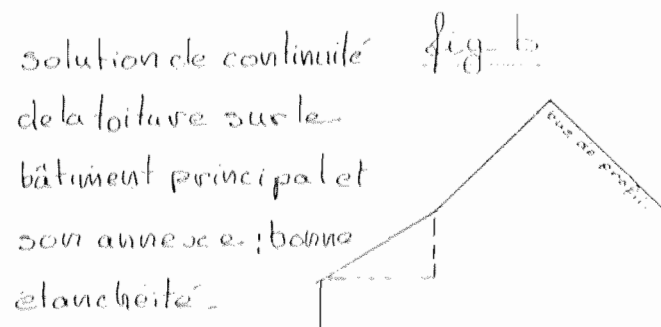 solution de continuité
de la toiture sur le
bâtiment principal et
son annexe ; bonne
étanchéité.
fig. b
vue de profil.